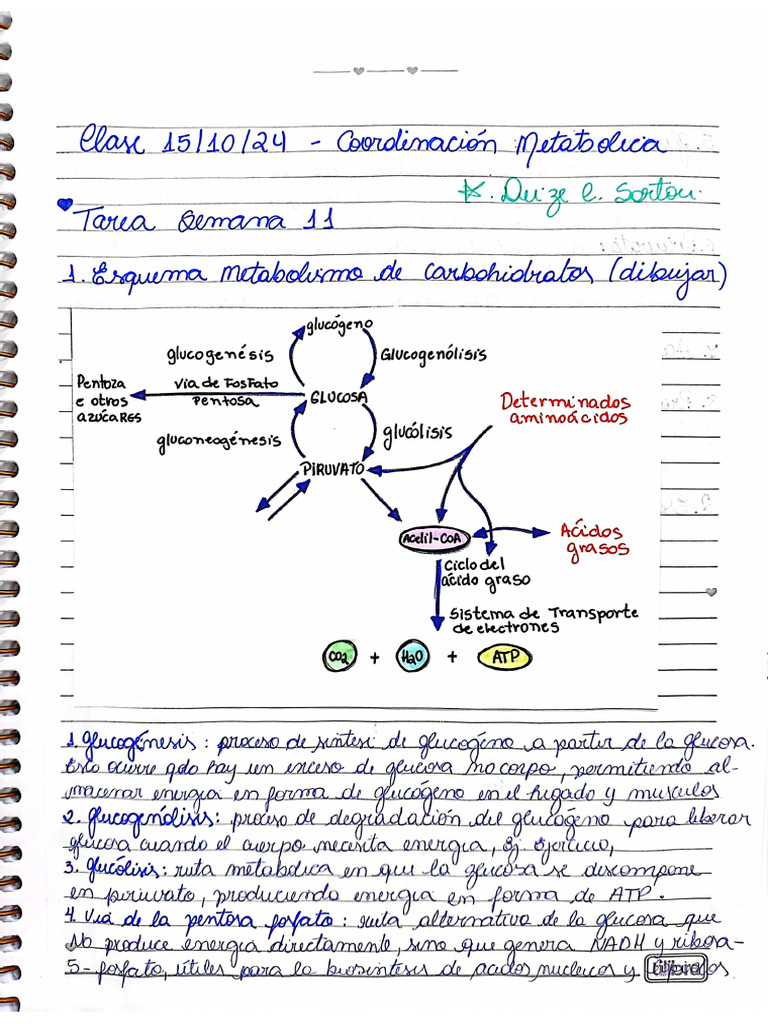 Clase 15/10/24 - Coordinación Metabolica
Tarea Semana 11
1. Esquema metabolismo de carbohidratos (dibujar)
glucógeno
glucogenésis
Glucogenólisis
Pentoza
e otros
azúcares
via de Fosfato
Pentosa
GLUCOSA
Determinados
aminoácidos
gluconeogénesis
glucólisis
PIRUVATO
Acetil-CoA
Ácidos
grasos
Ciclo del
ácido graso
Sistema de Transporte
de electrones
CO2 + H2O + ATP
1. glucogénesis: proceso de síntesi de glucogéno a partir de la glucosa.
Esto ocurre qdo hay un exceso de glucosa no corpo, permitiendo al-
macenar energia en forma de glucógeno en el hígado y musculos
2. glucogenólisis: proceso de degradación del glucógeno para liberar
glucosa cuando el cuerpo necesita energia, Ej ejercicio,
3. glucólisis: ruta metabolica en que la glucosa se descompone
en piruvato, produciendo energia en forma de ATP.
4. Vía de la pentosa fosfato: ruta alternativa de la glucosa que
No produce energia directamente, sino que genera NADH y ribosa-
5-fosfato, útiles para la biosíntesis de acidos nucleicos y
tilibra